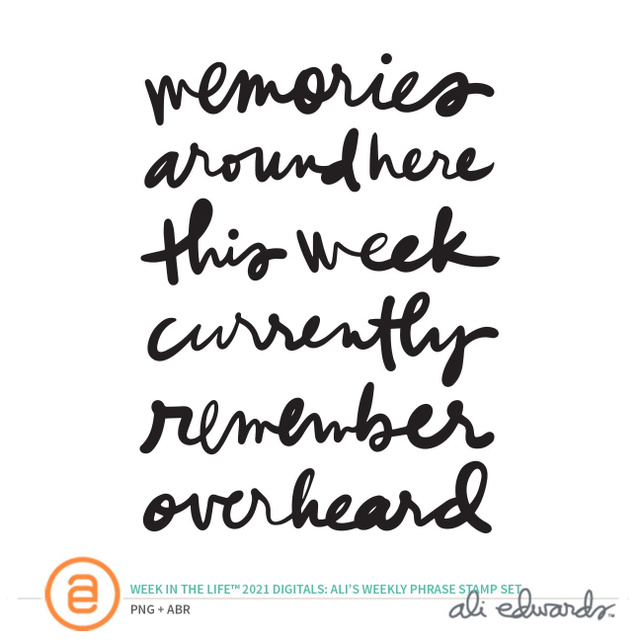 memories
around here
this week
currently
remember
overheard
a
WEEK IN THE LIFE™ 2021 DIGITALS: ALI'S WEEKLY PHRASE STAMP SET
PNG + ABR
ali edwards